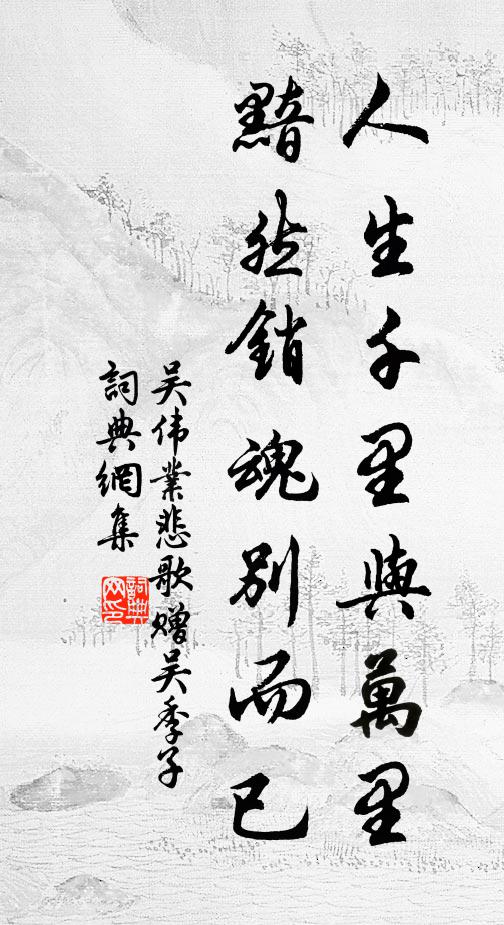 人生千里與萬里
黯然銷魂別而已
吴伟業悲歌赠吴季子
詞典網集